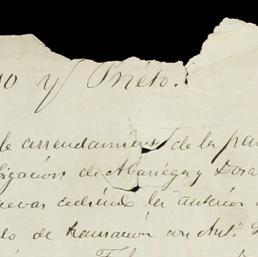 y Prieto.
de arrendamiento de la par
ligación de Abariega y Dora
uevas cediendo la anterior
do de transación con Antº